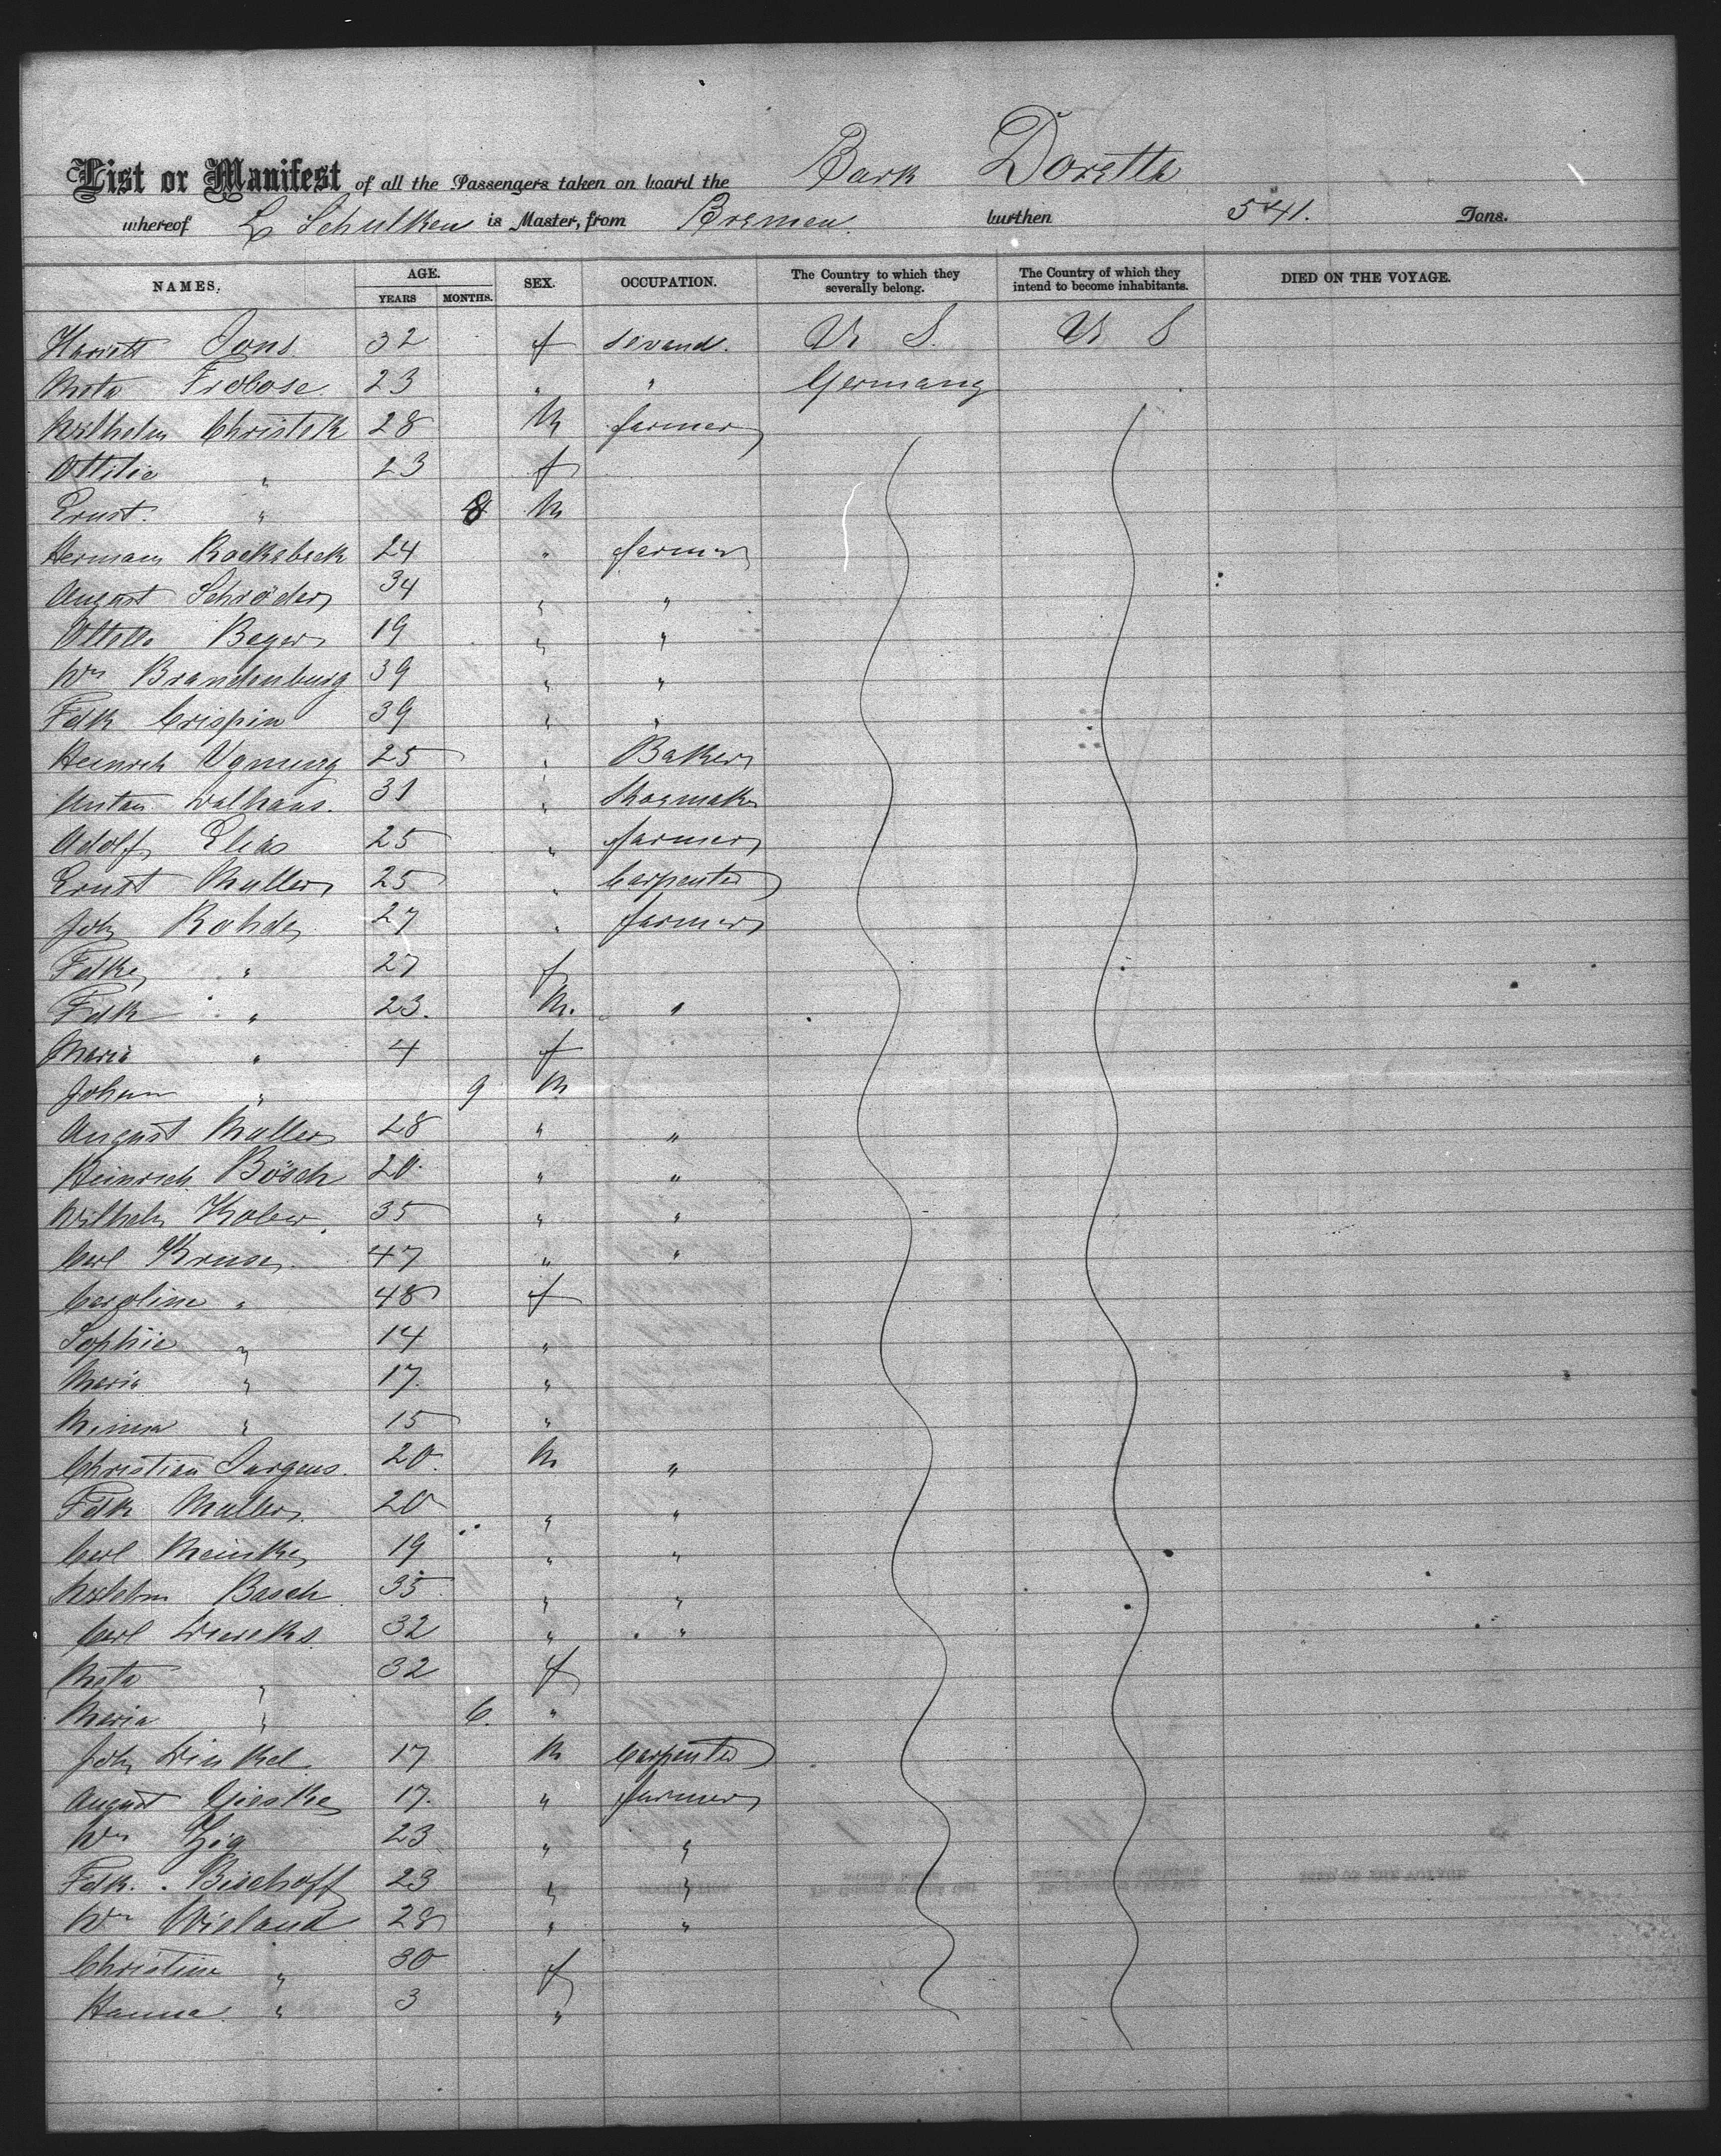 List or Manifest of all the Passengers taken on board the Bark Doretta
whereof L Schulken is Master, from Bremen. burthen 541. Tons.
NAMES. AGE. YEARS MONTHS. SEX. OCCUPATION. The Country to which they severally belong. The Country of which they intend to become inhabitants. DIED ON THE VOYAGE.
Hariett Jons 32 f Servand. U S. U S
Meta Frobose. 23 " " Germany
Wilhelm Christek 28 M farmer
Ottilie " 23 f
Ernst. " 8 M
Hermann 24 " farmer
August Schröder 34 " "
Beyer 19 " "
Wm Brandenburg 39 " "
Fdk Crispin 39 " "
Heinrich 25 " Baker
Anton Walhaus. 31 " Shoemaker
Adolf Elias 25 " farmer
Ernst Muller 25 " Carpenter
Joh Rohde 27 " farmer
Fdke " 27 f
Fdk " 23. M. "
Maria " 4 f
Johann " 9 M
August Muller 28 " "
Heinrich Bösch 20. " "
Wilhelm 35 " "
Carl Kruse 47 " "
Caroline " 48 f
Sophie " 14 "
Maria " 17. "
Minna " 15 "
Christian Jurgens. 20. M "
Fdk Muller. 20 " "
Carl Meinke 19 " "
Wilhelm Basch. 35 " "
Carl Diercks. 32 " "
Meta " 32 f
Maria " 6. "
Joh Winkel. 17 M Carpenter
August Gieske 17. " farmer
Wm 23 " "
Fdk. Bischoff 23 " "
Wm Wieland 28 " "
Christine " 30 f
Hanna " 3 "